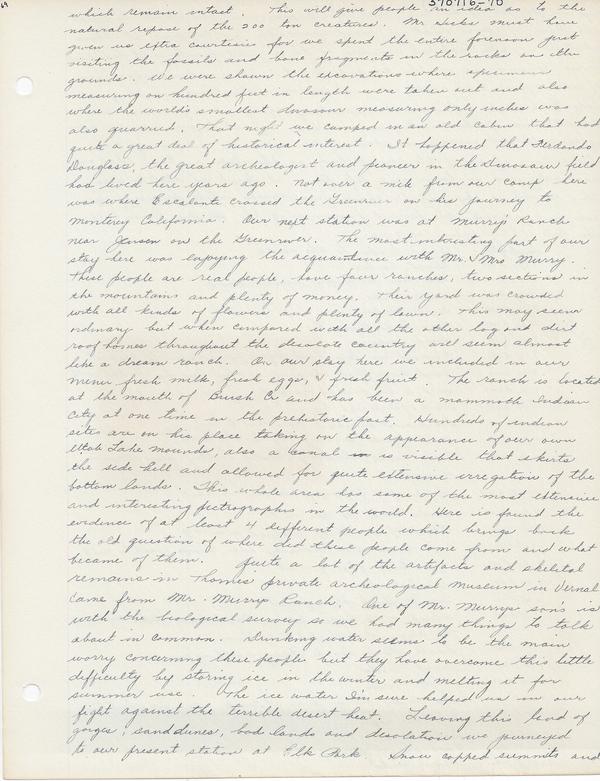 69 370716-70
which remain intact. This will give people an idea as to the
natural repose of the 200 ton creatures. Mr Hicks must have
given us extra courtesies for we spent the entire forenoon just
visiting the fossils and bone fragments in the rocks on the
grounds. We were shown the excavations where specimens
measuring on hundred feet in length were taken out and also
where the world's smallest dinosaur measuring only inches was
also quarried. That night we camped in an old cabin that had
quite a great deal of historical interest. It happened that
Douglass, the great archeologist and pioneer in the dinosaur field
had lived here years ago. Not over a mile from our camp here
was where Escalante crossed the Greenriver on his journey to
Monterey California. Our next station was at Murry's Ranch
near Jensen on the Greenriver. The most interesting part of our
stay here was enjoying the acquaintance with Mr. & Mrs Murry.
These people are real people, have four ranches, two sections in
the mountains and plenty of money. Their yard was crowded
with all kinds of flowers and plenty of lawn. This may seem
ordinary but when compared with all the other log and dirt
roof homes throughout the desolate country all seem almost
like a dream ranch. On our stay here we included in our
menu fresh milk, fresh eggs, & fresh fruit. The ranch is located
at the mouth of Brush Cr and has been a mammoth Indian
City at one time in the prehistoric past. Hundreds of indian
sites are on his place taking on the appearance of our own
Utah Lake mounds, also a canal is visible that skirts
the side hill and allowed for quite extensive irregation of the
bottom lands. This whole area has some of the most extensive
and interesting pectrographs in the world. Here is found the
evidence of at least 4 different people which brings back
the old question of where did these people come from and what
became of them. Quite a lot of the artifacts and skeletal
remains in Thornes private archeological museum in Vernal
came from Mr. Murrys Ranch. One of Mr. Murrys son's is
with the biological survey so we had many things to talk
about in common. Drinking water seems to be the main
worry concerning these people but they have overcome this little
difficulty by storing ice in the winter and melting it for
summer use. The ice water I'm sure helped us in our
fight against the terrible desert heat. Leaving this land of
gorges, sand dunes, bad lands and desolation we journeyed
to our present station at Elk Park Snow capped summits and